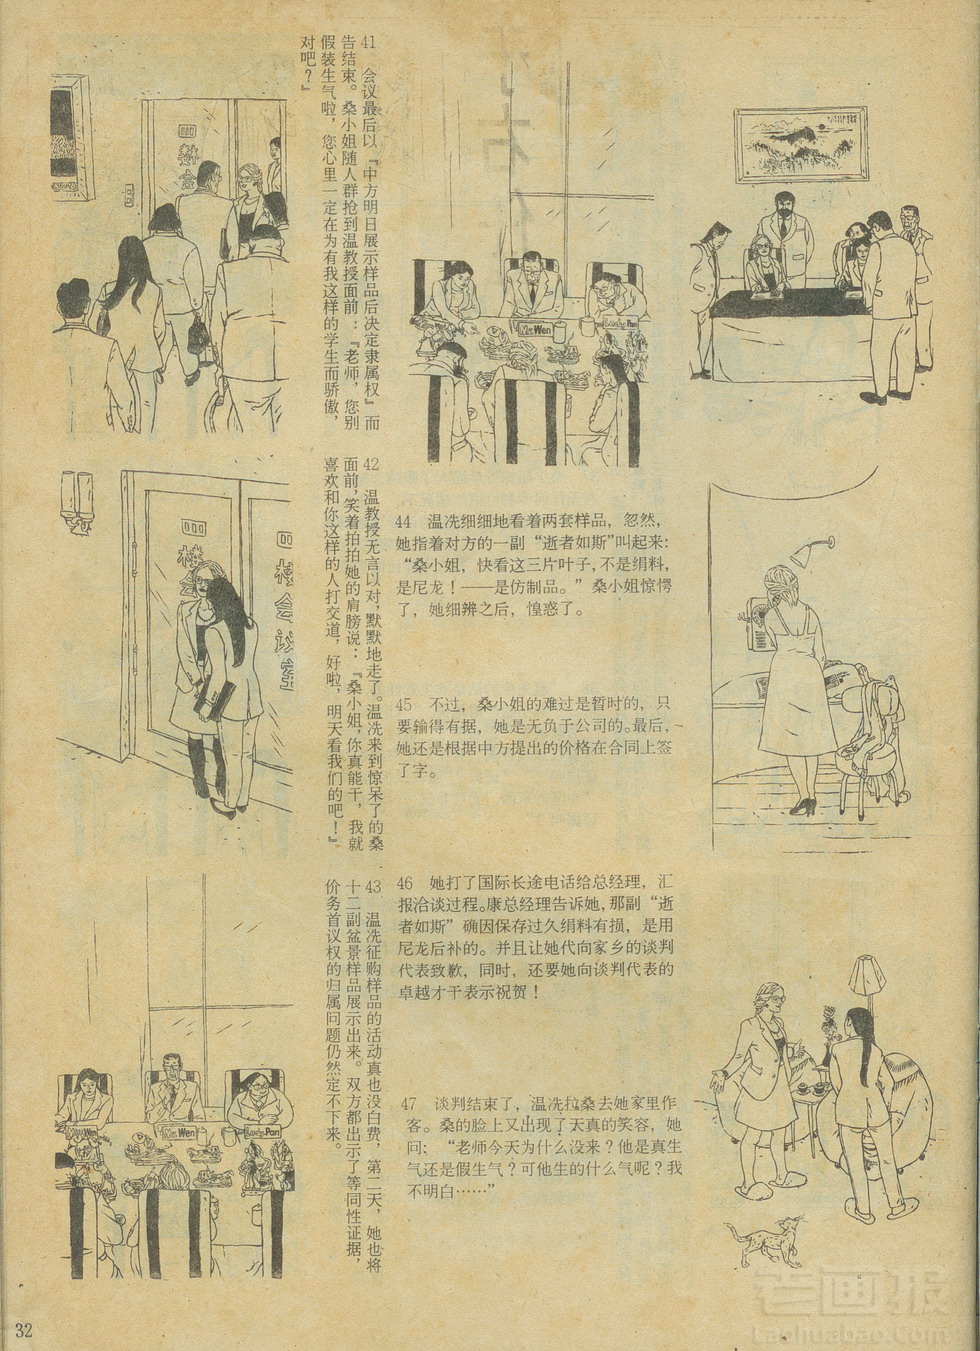 41 会议最后以『中方明日展示样品后决定隶属权』而
告结束。桑小姐随人群抢到温教授面前：『老师，您别
假装生气啦，您心里一定在为有我这样的学生而骄傲，
对吧？』
42 温教授无言以对，默默地走了。温冼来到惊呆了的桑
面前，笑着拍拍她的肩膀说：『桑小姐，你真能干，我就
喜欢和你这样的人打交道，好啦，明天看我们的吧！』
43 温冼征购样品的活动真也没白费，第二天，她也将
十二副盆景样品展示出来。双方都出示了等同性证据，
价务首议权的归属问题仍然定不下来。
44 温冼细细地看着两套样品，忽然，
她指着对方的一副“逝者如斯”叫起来：
“桑小姐，快看这三片叶子，不是绢料，
是尼龙！——是仿制品。”桑小姐惊愕
了，她细辨之后，惶惑了。
45 不过，桑小姐的难过是暂时的，只
要输得有据，她是无负于公司的。最后，
她还是根据中方提出的价格在合同上签
了字。
46 她打了国际长途电话给总经理，汇
报洽谈过程。康总经理告诉她，那副“逝
者如斯”确因保存过久绢料有损，是用
尼龙后补的。并且让她代向家乡的谈判
代表致歉，同时，还要她向谈判代表的
卓越才干表示祝贺！
47 谈判结束了，温冼拉桑去她家里作
客。桑的脸上又出现了天真的笑容，她
问：“老师今天为什么没来？他是真生
气还是假生气？可他生的什么气呢？我
不明白……”
Wen
Pan
楼
楼会议室
Wen
Wen
Pan
32
老画报
Laohuabao.com